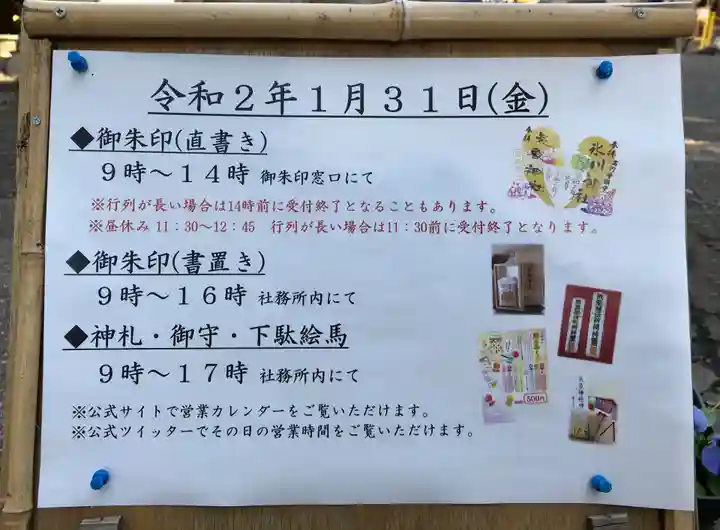 令和２年１月３１日(金)
◆御朱印(直書き)
９時～１４時 御朱印窓口にて
※行列が長い場合は14時前に受付終了となることもあります。
※昼休み 11：30～12：45　行列が長い場合は11：30前に受付終了となります。
◆御朱印(書置き)
９時～１６時 社務所内にて
◆神札・御守・下駄絵馬
９時～１７時 社務所内にて
※公式サイトで営業カレンダーをご覧いただけます。
※公式ツイッターでその日の営業時間をご覧いただけます。
氷川神社
500円